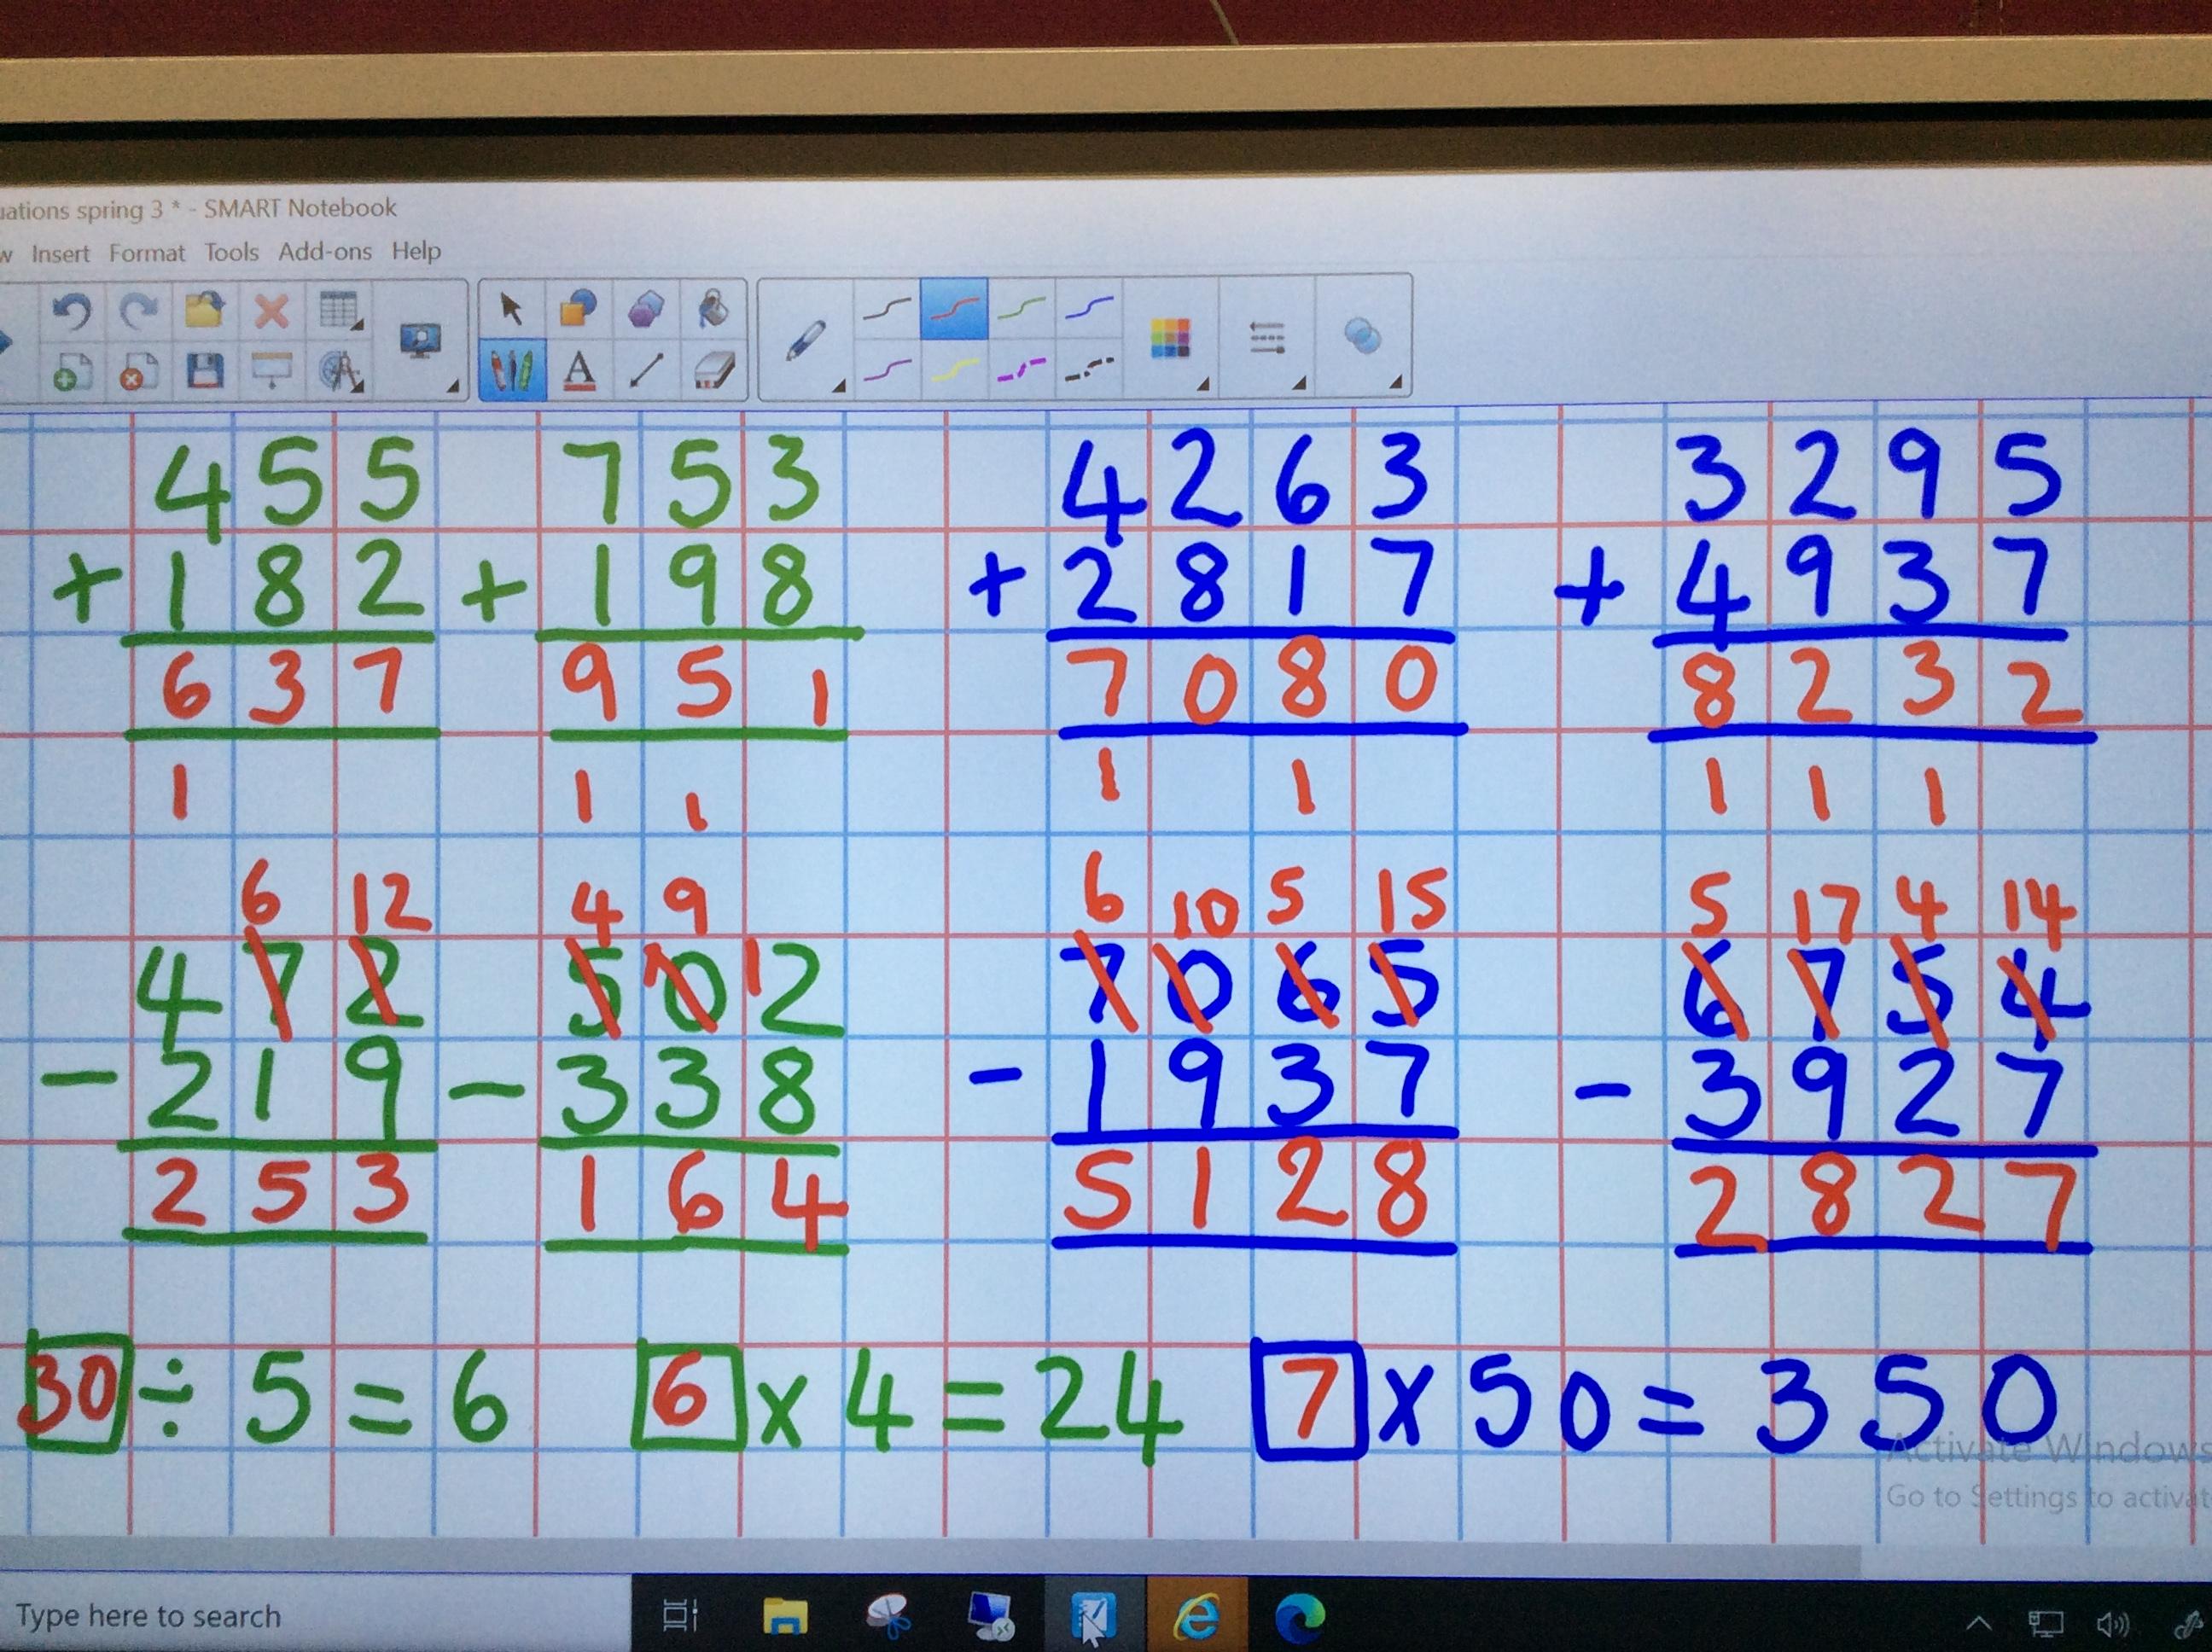 uations spring 3 * - SMART Notebook
w Insert Format Tools Add-ons Help
A
455 753 4263 3295
+ 182 + 198 + 2817 + 4937
637 951 7080 8232
1 1 1 1 1 1 1 1
6 12 4 9 6 10 5 15 5 17 4 14
472 5 1 0 1 2 7065 6754
- 219 - 338 - 1937 - 3927
253 164 5128 2827
30 ÷ 5 = 6 6 x 4 = 24 7 x 50 = 350
Activate Windows
Go to Settings to activat
Type here to search